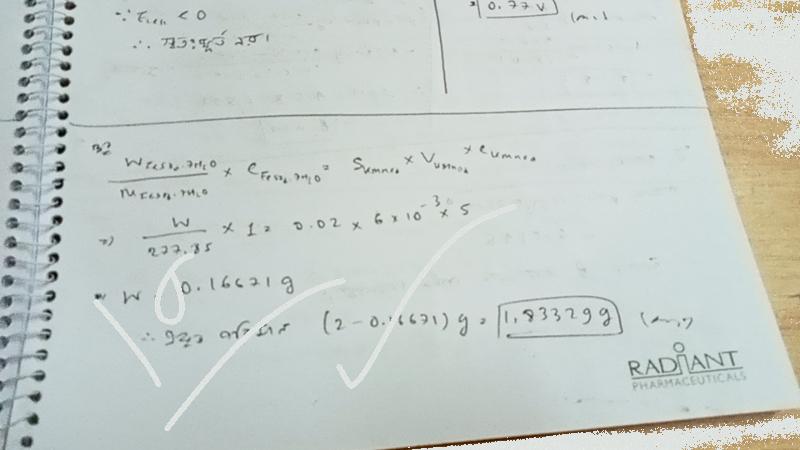 ∵ E_cell < 0
∴ স্বতঃস্ফূর্ত নয়।
0.77 V (Ans.)
W_FeSO₄.7H₂O / M_FeSO₄.7H₂O × e_FeSO₄.7H₂O = S_KMnO₄ × V_KMnO₄ × e_KMnO₄
⇒ W / 277.85 × 1 = 0.02 × 6 × 10⁻³ × 5
W 0.16671 g
∴ (2 − 0.16671) g = 1.83329 g (Ans.)
RADIANT
PHARMACEUTICALS